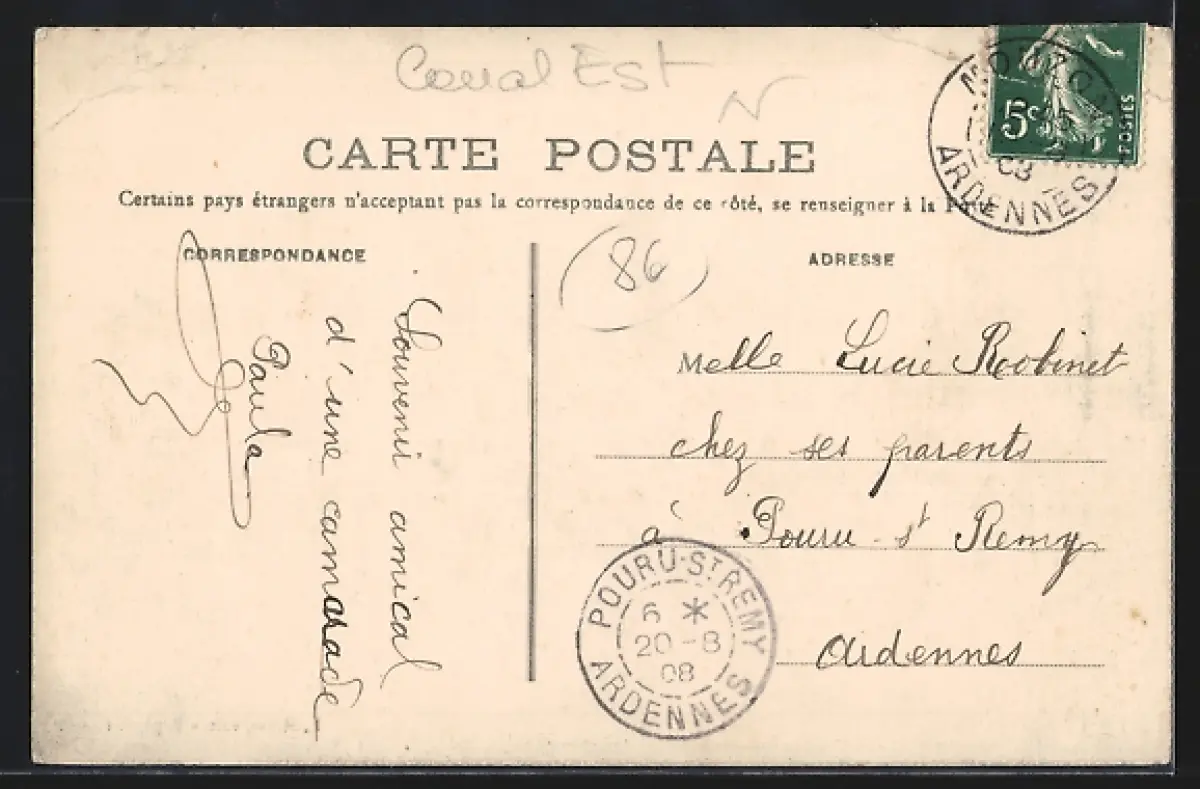 Canal Est
N
CARTE POSTALE
Certains pays étrangers n'acceptant pas la correspondance de ce côté, se renseigner à la Poste
CORRESPONDANCE
Souvenir amical
d'une camarade
Paula
(86)
ADRESSE
Melle Lucie Robinet
chez ses parents
à Pouru-St Remy
Ardennes
5c
POSTES
MOUZON
08
ARDENNES
POURU-ST REMY
6 *
20-8
08
ARDENNES